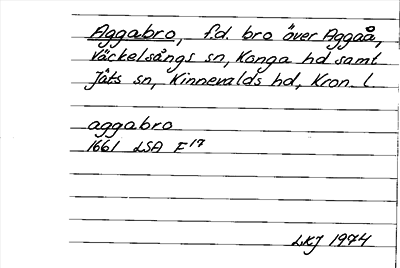 Aggabro, f.d. bro över Aggaå,
Väckelsångs sn, Konga hd samt
Jäts sn, Kinnevalds hd, Kron. l
aggabro
1661 LSA F17
LKJ 1974